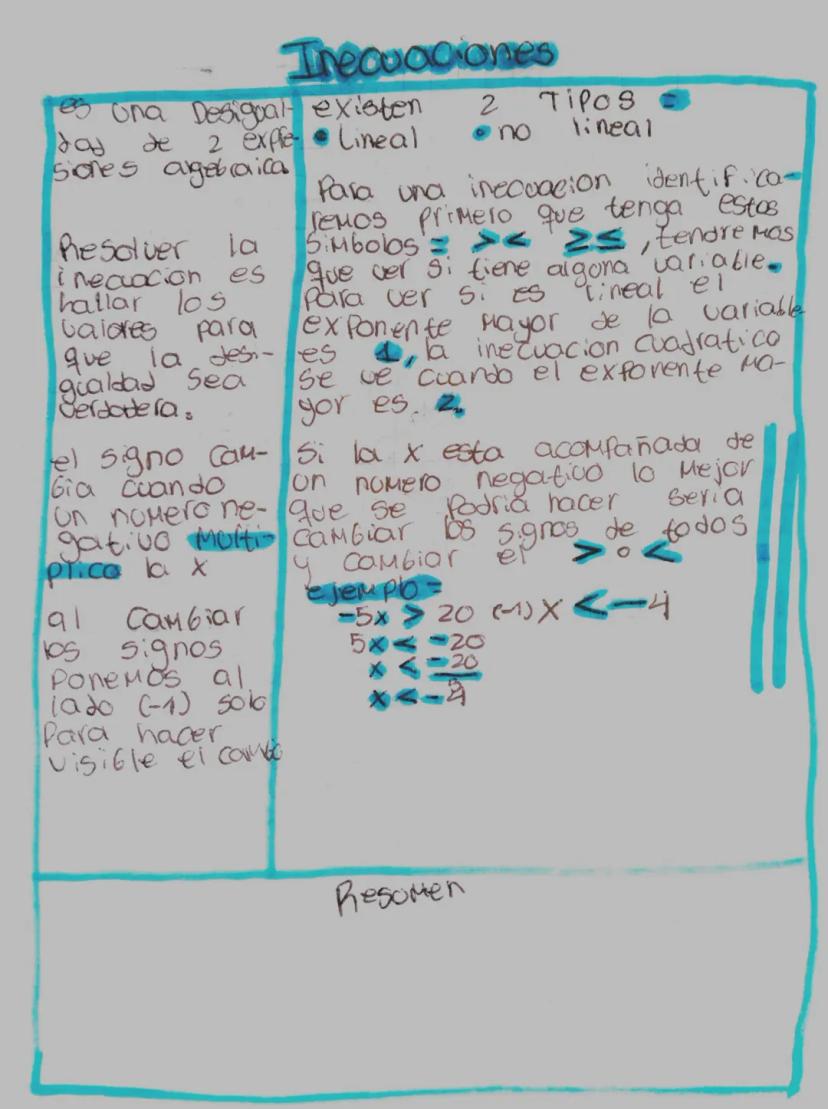 Inecuaciones
es una Desigual-
dad de 2 expre-
siones algebraica
Resolver la
inecuacion es
hallar los
valores para
que la desi-
gualdad sea
verdadera.
el signo cam-
bia cuando
un numero ne-
gativo multi-
plica la x
al cambiar
los signos
ponemos al
lado (-1) solo
para hacer
visible el cambio
existen 2 TIPOS =
• Lineal • no lineal
Para una inecuacion identifica-
remos primero que tenga estos
simbolos = > < ≥ ≤, tendremos
que ver si tiene alguna variable.
para ver si es lineal el
exponente mayor de la variable
es 1, la inecuacion cuadratico
se ve cuando el exponente ma-
yor es 2.
Si la x esta acompañada de
un numero negativo lo mejor
que se podria hacer seria
cambiar los signos de todos
y cambiar el > o <
ejemplo=
-5x > 20 (-1) x < -4
5x < -20
x < -20
5
x < -4
Resumen